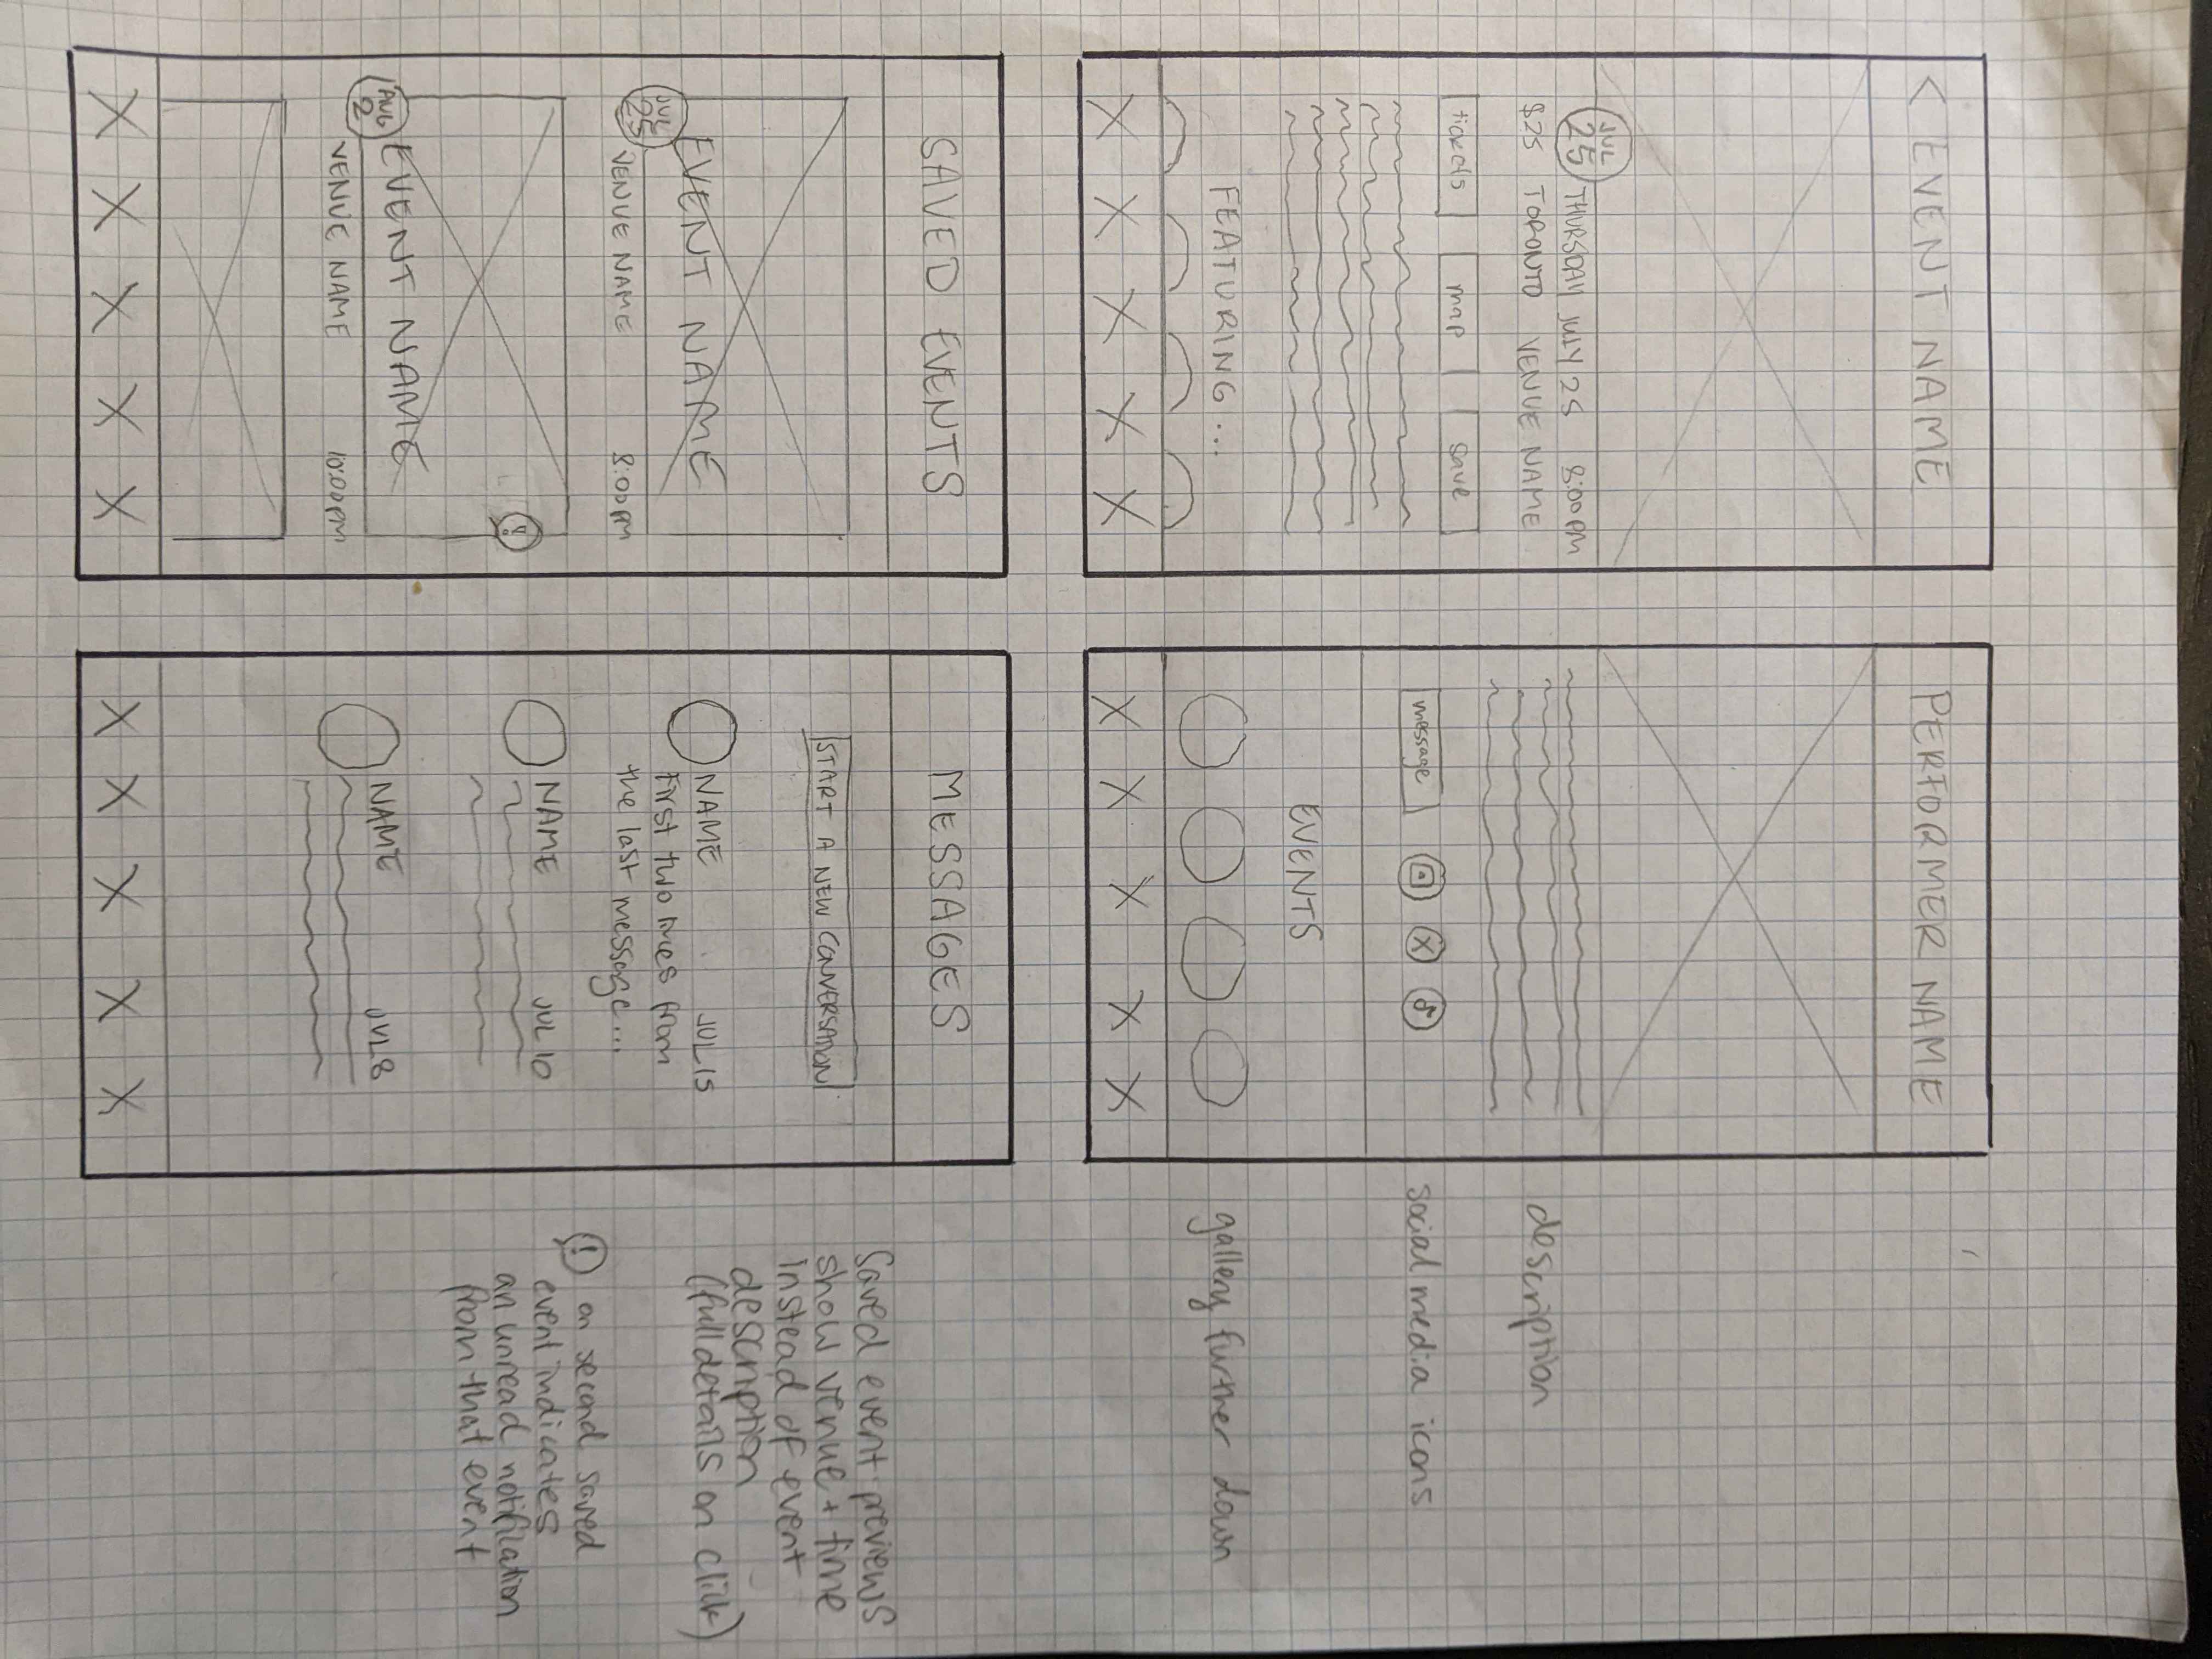 < EVENT NAME
JUL
25
THURSDAY JULY 25 8:00PM
$25 TORONTO VENUE NAME
tickets map save
FEATURING...
X X X X X
PERFORMER NAME
description
message X
social media icons
EVENTS
gallery further down
X X X X X
SAVED EVENTS
EVENT NAME
JUL
25
VENUE NAME 8:00PM
!
EVENT NAME
AUG
2
VENUE NAME 10:00PM
X X X X X
MESSAGES
START A NEW CONVERSATION
NAME JUL 15
First two lines from
the last message...
NAME JUL 10
NAME JUL 8
X X X X X
Saved event previews
show venue + time
instead of event
description
(full details on click)
! on second saved
event indicates
an unread notification
from that event